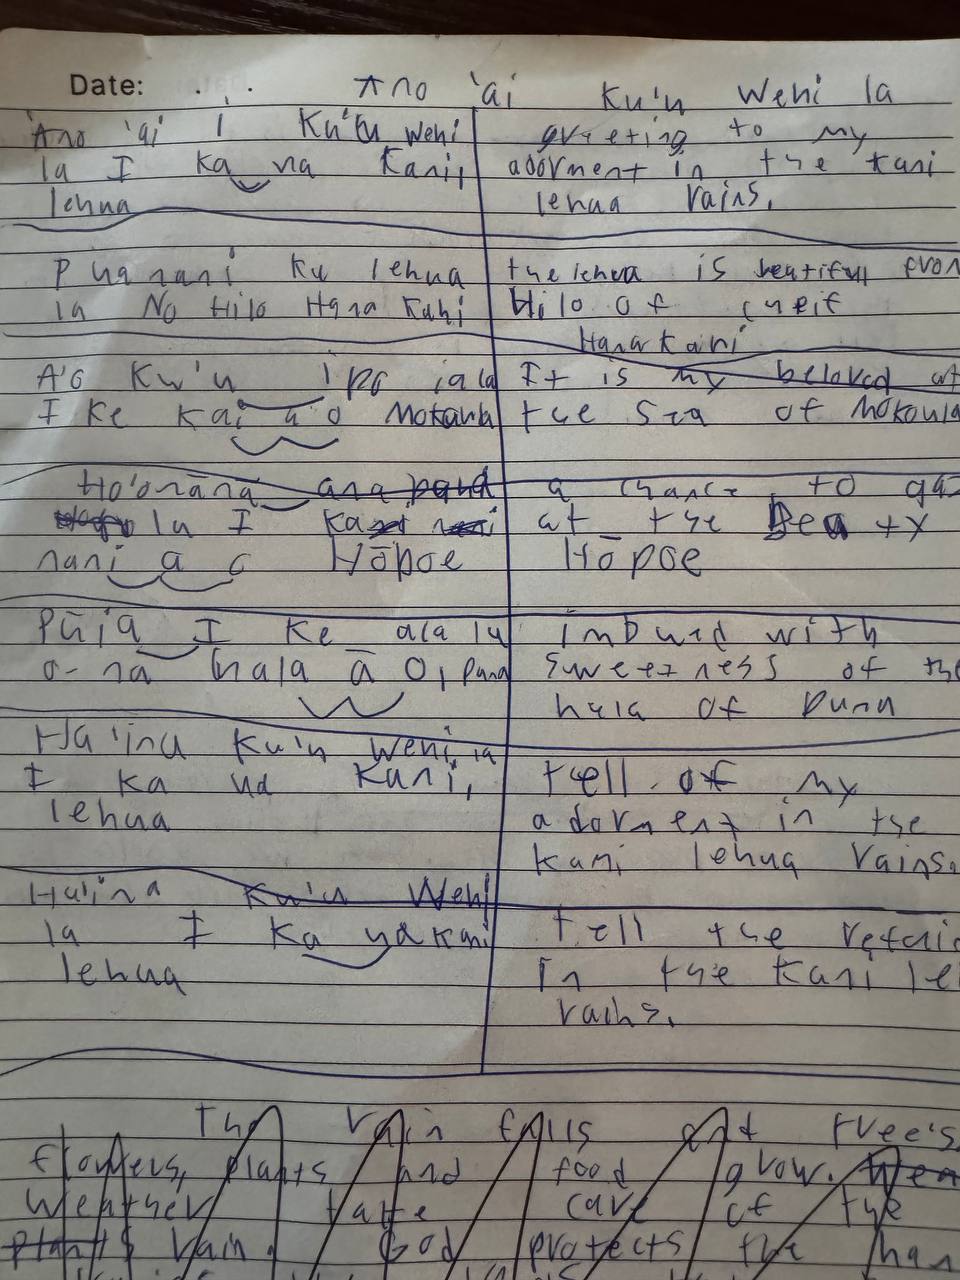 Date: Ano 'ai Ku'u Wehi la
'Ano 'ai i Ku'u wehi
la I ka ua Kani,
lehua
greeting to my
adorment in the kani
lehua rains.
Pua nani ku lehua
la No Hilo Hana Kahi
the lehua is beatifull from
Hilo of cheif
Hana kani
A'o Ku'u ipo iala
I ke kai a o Mokaula
It is my beloved at
the sea of Mokoula
Ho'onana ana pana
la I ka nani
nani a o Hōpoe
a chance to ga
at the Bea ty
Hōpoe
Pūia I ke ala lu
o-na hala ā O, puna
imbued with
sweetness of the
hala of puna
Ha'ina ku'u wehi la
I ka ua kani,
lehua
tell of my
adorment in the
kani lehua rains.
Ha'ina Ku'u Wehi
la I ka ua kani
lehua
tell the refrai
In the kani le
rains.
The rain falls and tree's
flowers, plants and food grow. Wea
weather take care of the
plants rain. God protects the han